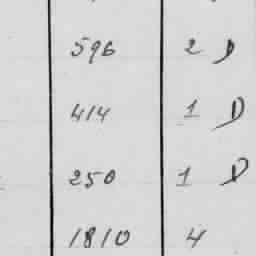 596 2 D
414 1 D
250 1 D
1810 4